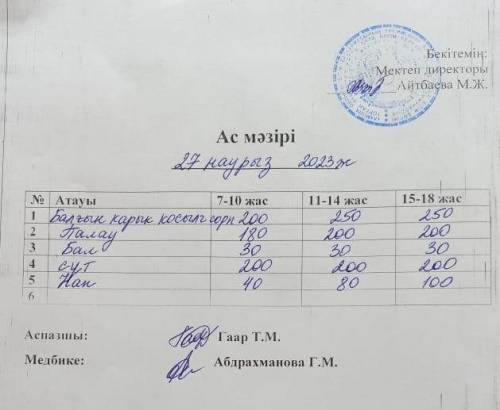 Бекітемін:
Мектеп директоры
Айтбаева М.Ж.
Ас мәзірі
27 наурыз 2023ж
№ Атауы 7-10 жас 11-14 жас 15-18 жас
1 Балғын қарық қосылғ сорп 200 250 250
2 Палау 180 200 200
3 Бал 30 30 30
4 сүт 200 200 200
5 Нан 40 80 100
6
Аспазшы: Гаар Т.М.
Медбике: Абдрахманова Г.М.